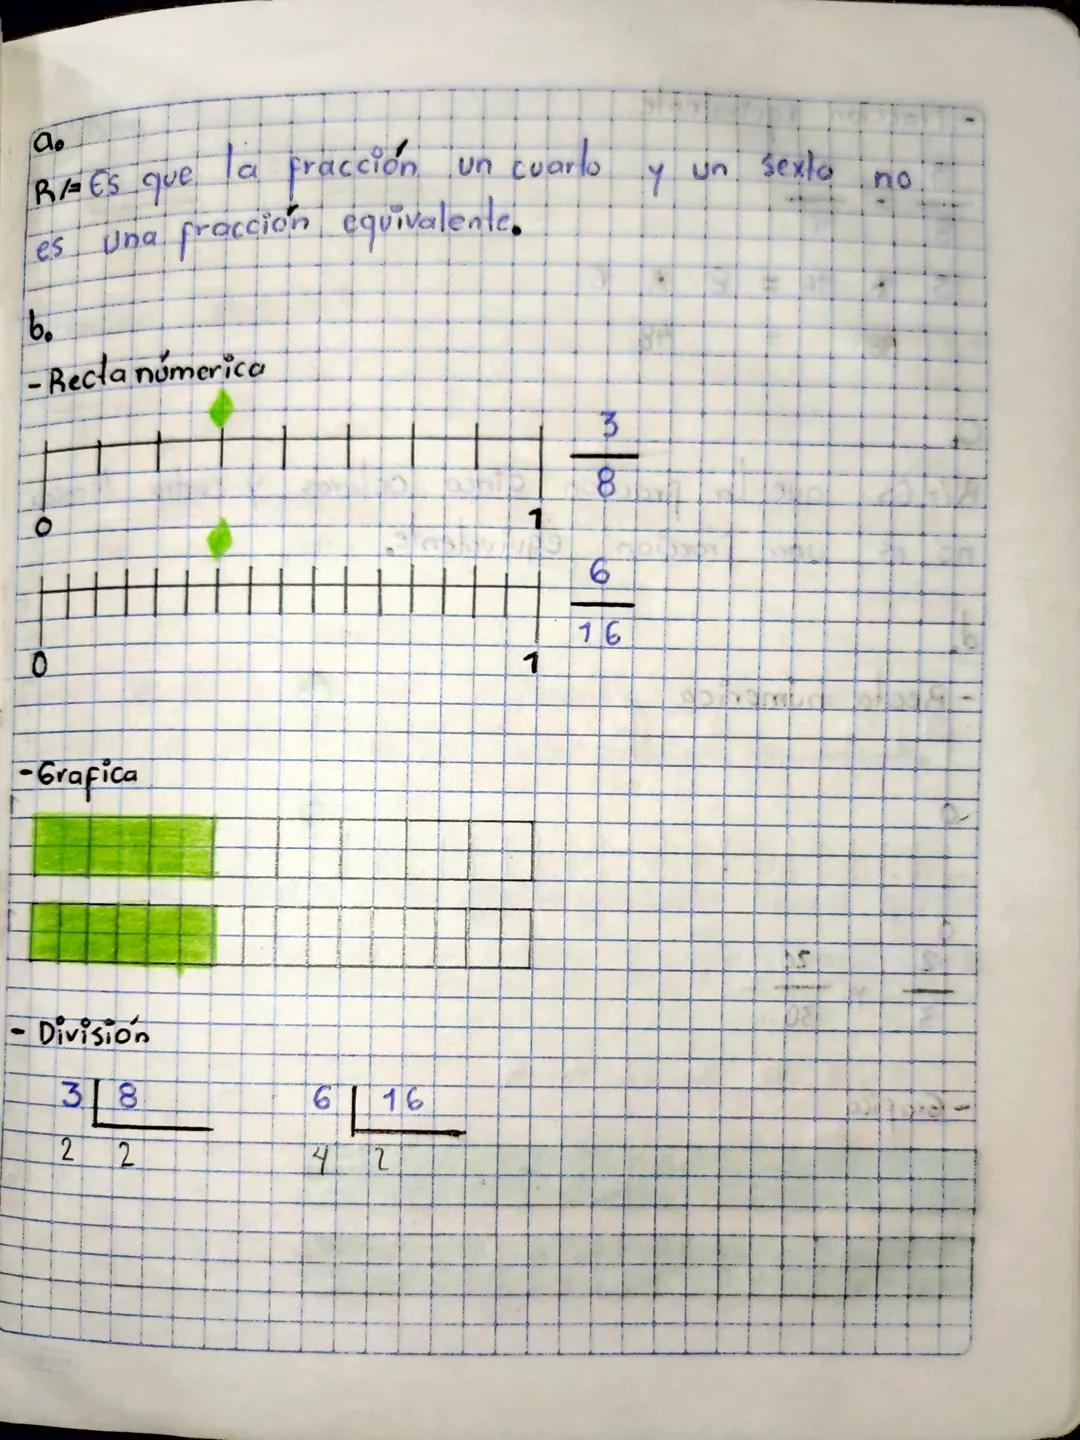 a.
R/= Es que la fracción un cuarto y un sexto no
es una fracción equivalente.
b.
- Recta númerica
3
8
0 1
6
16
0 1
- Grafica
- División
3 8 6 16
2 2 4 2